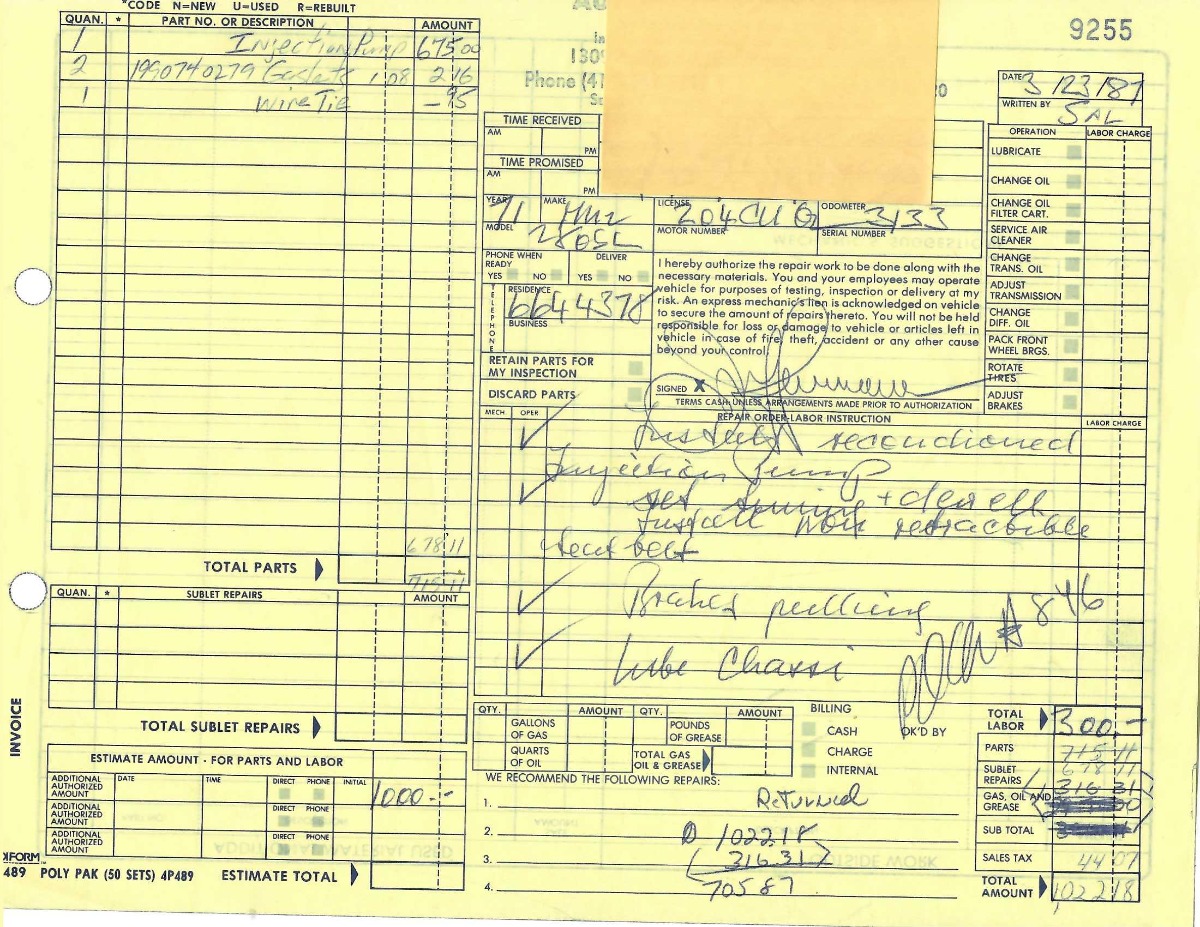 *CODE N=NEW U=USED R=REBUILT
QUAN. * PART NO. OR DESCRIPTION AMOUNT
1 Injection Pump 675 00
2 1990740279 Gaskets 1.08 2 16
1 Wire Tie — 95
678 11
TOTAL PARTS 715 11
QUAN. * SUBLET REPAIRS AMOUNT
TOTAL SUBLET REPAIRS
INVOICE
ESTIMATE AMOUNT - FOR PARTS AND LABOR
ADDITIONAL AUTHORIZED AMOUNT DATE TIME DIRECT PHONE INITIAL 1000.-
ADDITIONAL AUTHORIZED AMOUNT DIRECT PHONE
ADDITIONAL AUTHORIZED AMOUNT DIRECT PHONE
489 POLY PAK (50 SETS) 4P489 ESTIMATE TOTAL
9255
Phone (41
20
DATE 3/23/87
WRITTEN BY SAL
TIME RECEIVED
AM PM
TIME PROMISED
AM PM
YEAR 71 MAKE LICENSE 204CUQ ODOMETER 3133
MODEL 280SL MOTOR NUMBER SERIAL NUMBER
PHONE WHEN READY DELIVER
YES NO YES NO
TELEPHONE
RESIDENCE 6644378
BUSINESS
RETAIN PARTS FOR
MY INSPECTION
DISCARD PARTS
I hereby authorize the repair work to be done along with the
necessary materials. You and your employees may operate
vehicle for purposes of testing, inspection or delivery at my
risk. An express mechanic's lien is acknowledged on vehicle
to secure the amount of repairs thereto. You will not be held
responsible for loss or damage to vehicle or articles left in
vehicle in case of fire, theft, accident or any other cause
beyond your control.
SIGNED X
TERMS CASH UNLESS ARRANGEMENTS MADE PRIOR TO AUTHORIZATION
OPERATION LABOR CHARGE
LUBRICATE
CHANGE OIL
CHANGE OIL FILTER CART.
SERVICE AIR CLEANER
CHANGE TRANS. OIL
ADJUST TRANSMISSION
CHANGE DIFF. OIL
PACK FRONT WHEEL BRGS.
ROTATE TIRES
ADJUST BRAKES
MECH. OPER REPAIR ORDER-LABOR INSTRUCTION LABOR CHARGE
Install reconditioned
Injection Pump
set timing + dewell
Install non retractible
seat belt
Brakes pulling
Lube Chassi
# 846
QTY. AMOUNT QTY. AMOUNT BILLING
GALLONS OF GAS POUNDS OF GREASE CASH OK'D BY
QUARTS OF OIL TOTAL GAS OIL & GREASE CHARGE
INTERNAL
WE RECOMMEND THE FOLLOWING REPAIRS:
1. Returned
2. 1022 18
3. (316 31)
4. 705 87
TOTAL LABOR 300.-
PARTS 715 11
SUBLET REPAIRS 678 11
GAS, OIL AND GREASE (316 31)
SUB TOTAL
SALES TAX 44 07
TOTAL AMOUNT 1022 18